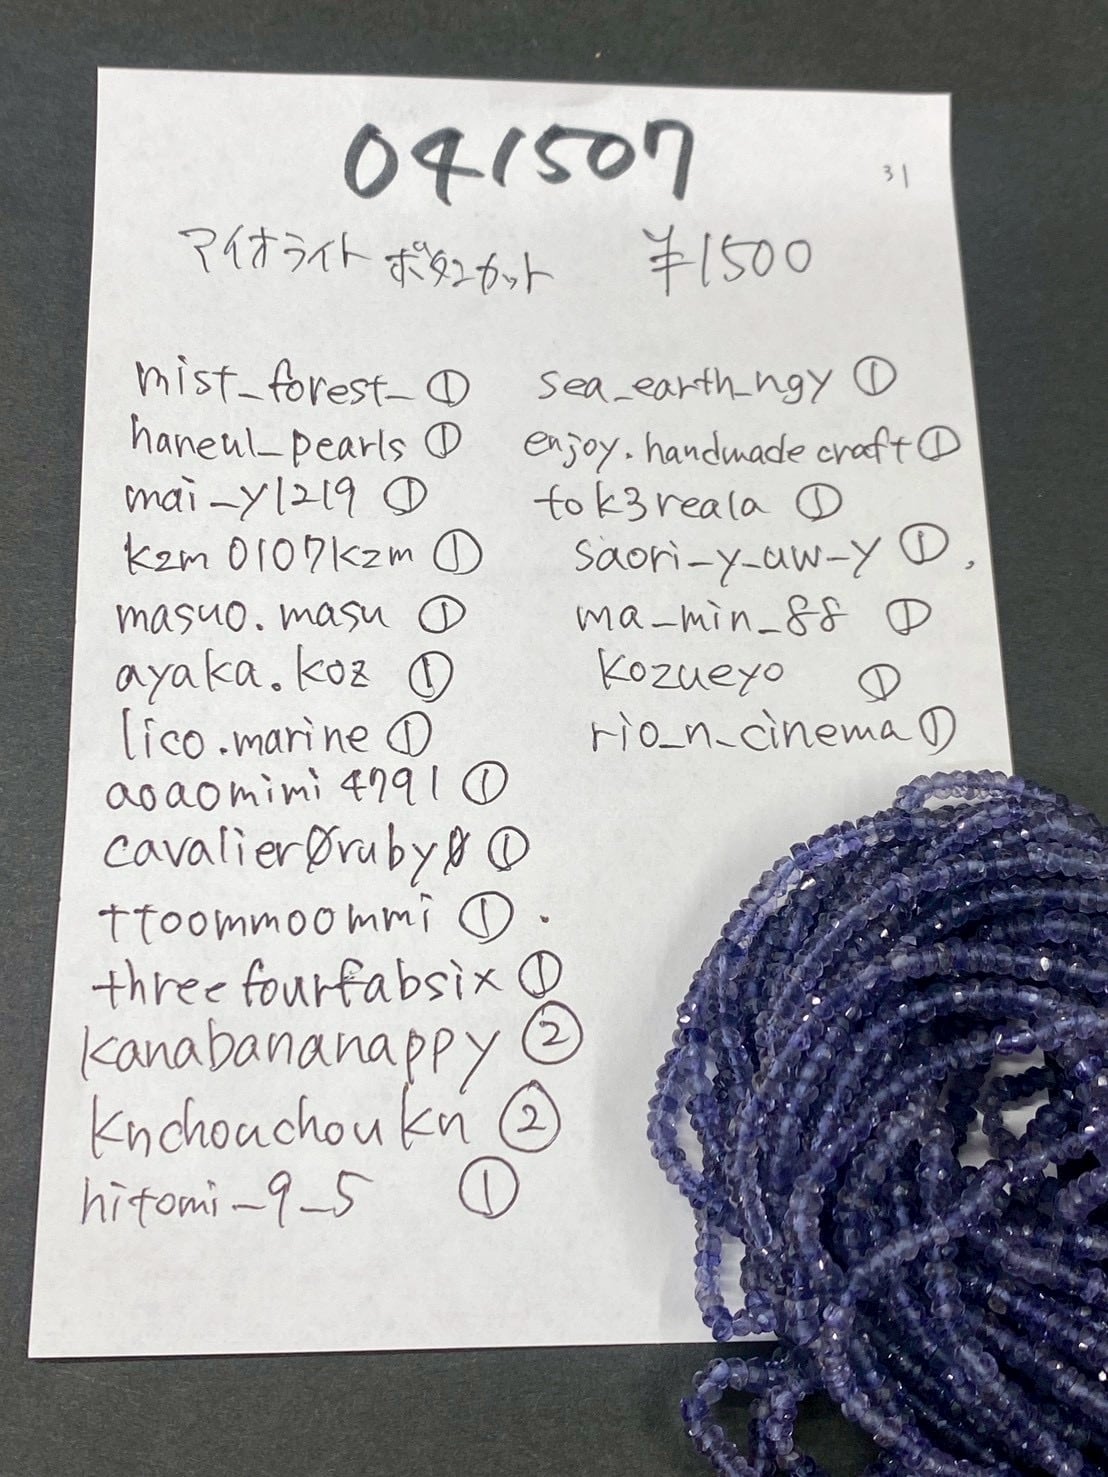 041507
31
マイオライト ボタンカット ¥1500
mist_forest_ ①
haneul_pearls ①
mai_y1219 ①
kzm0107kzm ①
masuo.masu ①
ayaka.koz ①
lico.marine ①
aoaomimi4791 ①
cavalier0ruby0 ①
ttoommoommi ①.
threefourfabsix ①
kanabananappy ②
knchouchoukn ②
hitomi_9_5 ①
sea_earth_ngy ①
enjoy.handmadecraft ①
tok3reala ①
saori_y_aw_y ①.
ma_min_88 ①
kozueyo ①
rio_n_cinema ①